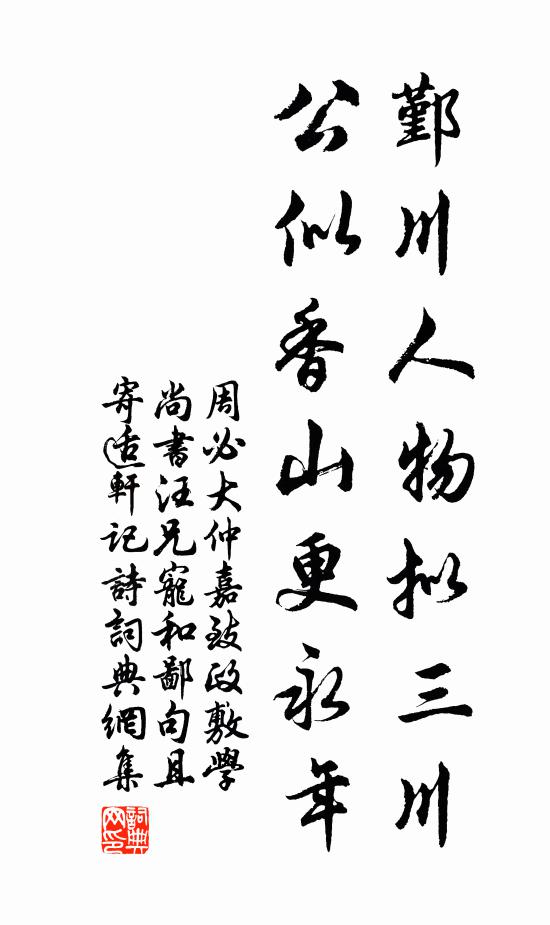 鄞川人物拟三川
公似香山更永年
周必大仲嘉致政敷學
尚書汪兄寵和鄙句且
寄适軒记詩詞典網集
詞典
网印